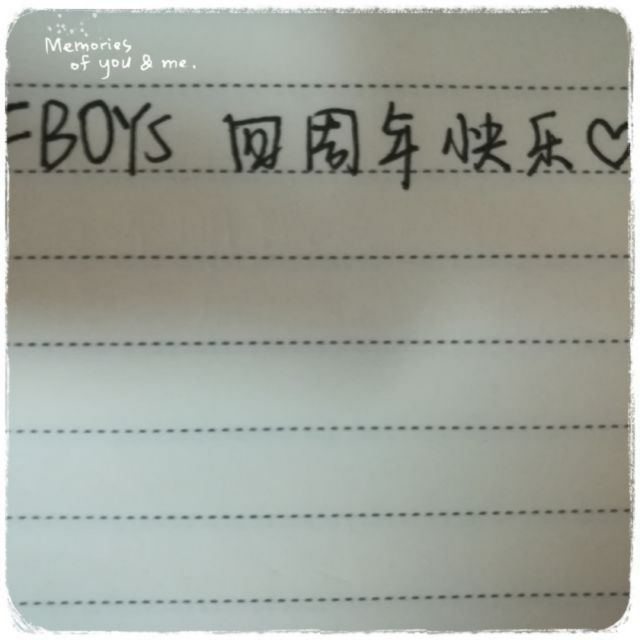 Memories
of you & me.
FBOYS 四周年快乐♡